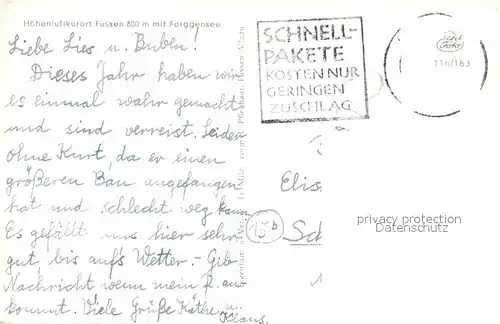 Höhenluftkurort Füssen 800 m mit Forggensee
Liebe Lies u. Buben!
Dieses Jahr haben wir
es einmal wahr gemacht
und sind verreist. Leider
ohne Kurt, da er einen
größeren Bau angefangen
hat und schlecht weg kann.
Es gefällt uns hier sehr
gut, bis auf's Wetter. - Gib
Nachricht wenn mein P. an-
kommt. Viele Grüße Käthe u.
Klaus.
SCHNELL-
PAKETE
KOSTEN NUR
GERINGEN
ZUSCHLAG
Elis
15b
Sch
privacy protection
Datenschutz